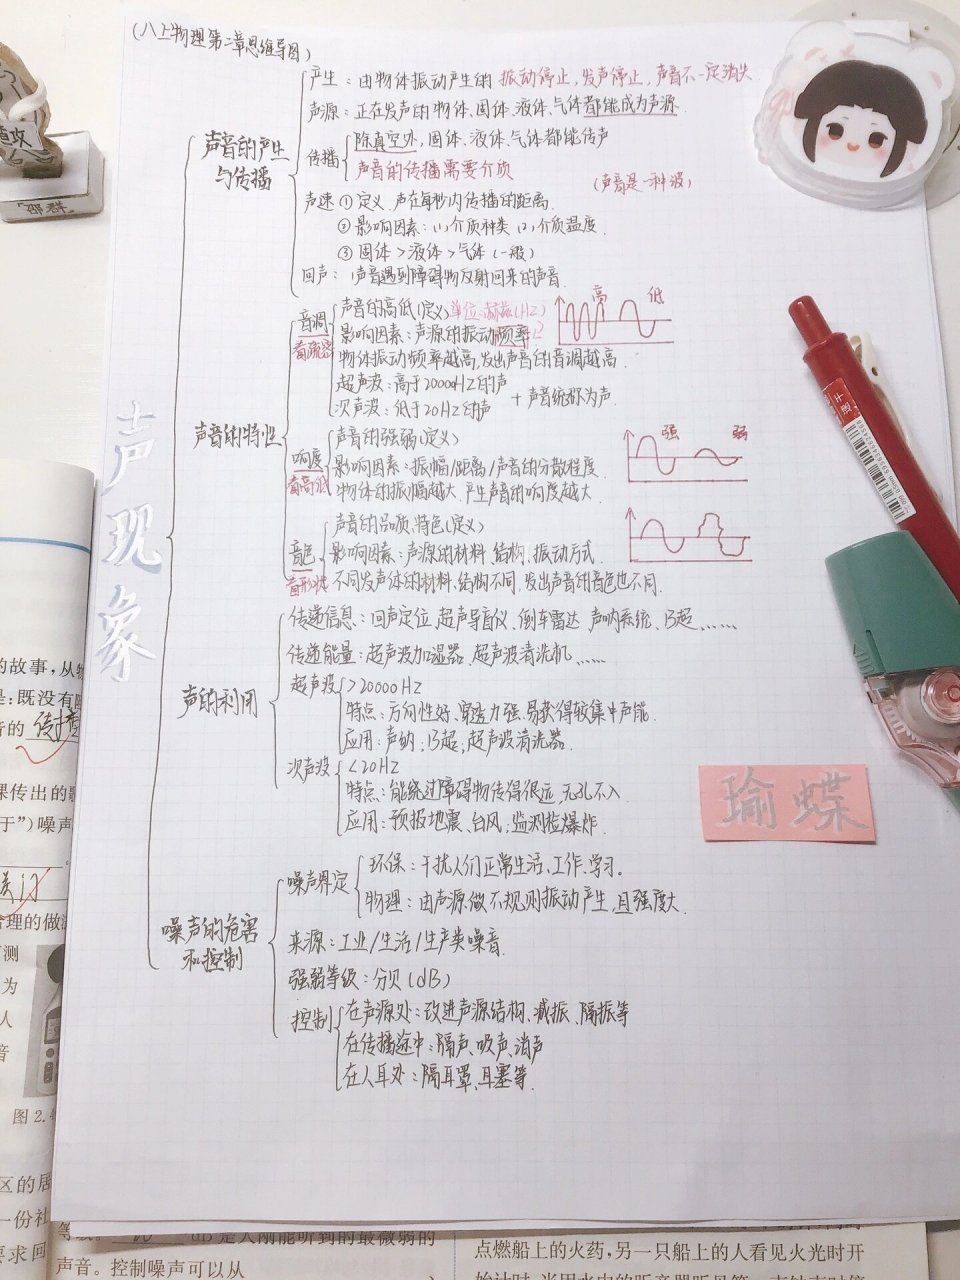 (八上物理第二章思维导图)
声现象
声音的产生
与传播
产生：由物体振动产生的 振动停止，发声停止，声音不一定消失
声源：正在发声的物体、固体、液体、气体都能成为声源.
传播
除真空外，固体、液体、气体都能传声
声音的传播需要介质
(声音是一种波)
声速 ①定义 声在每秒内传播的距离.
②影响因素：(1)介质种类 (2)介质温度.
③固体>液体>气体(一般)
回声：声音遇到障碍物反射回来的声音.
声音的特性
音调
看疏密
声音的高低(定义) 单位:赫兹(HZ)
影响因素：声源的振动频率
物体振动频率越高,发出声音的音调越高.
超声波：高于20000HZ的声
次声波：低于20HZ的声
+ 声音统称为声.
高 低
响度
看高低
声音的强弱(定义)
影响因素：振幅/距离/声音的分散程度
物体的振幅越大.产生声音的响度越大.
强 弱
音色
看形状
声音的品质、特色(定义)
影响因素：声源的材料、结构、振动方式
不同发声体的材料、结构不同,发出声音的音色也不同.
声的利用
传递信息：回声定位、超声导盲仪、倒车雷达 声呐系统、B超……
传递能量：超声波加湿器、超声波清洗机……
超声波
>20000HZ
特点：方向性好、穿透力强、易获得较集中声能.
应用：声呐,B超,超声波清洗器.
次声波
<20HZ
特点：能绕过障碍物传得很远、无孔不入
应用：预报地震、台风、监测核爆炸.
噪声的危害
和控制
噪声界定
环保：干扰人们正常生活、工作、学习。
物理：由声源做不规则振动产生,且强度大.
来源：工业/生活/生产类噪音.
强弱等级：分贝(dB)
控制
在声源处：改进声源结构、减振、隔振等
在传播途中：隔声、吸声、消声
在人耳处：隔耳罩、耳塞等.
瑜蝶
邵群
的故事，从
是：既没有
音的 传播
课传出的
于”)噪声
合理的做
测
为
人
音
图2.
区的居
一份社
要求回
等级。
dB是人刚能听到的最微弱的
声音。控制噪声可以从
点燃船上的火药，另一只船上的人看见火光时开